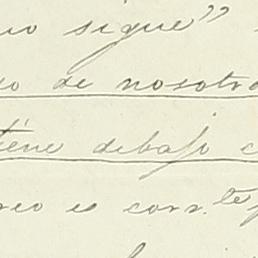 sigue"
de nosotro
tiene debajo c
es corr.te